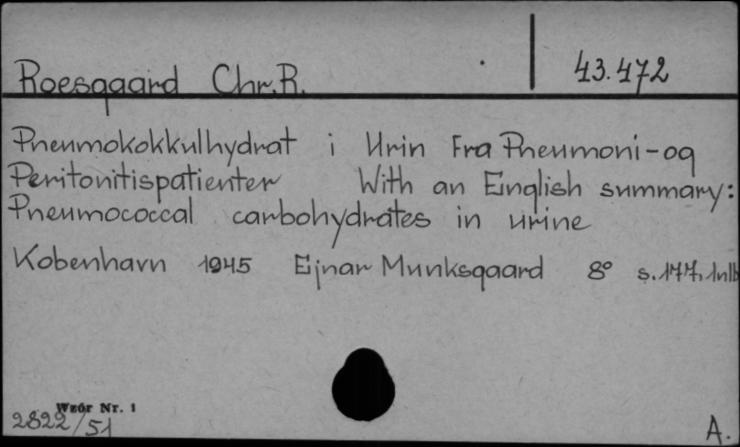 Roesgaard Chr. R. 43.472
Pneumokokkulhydrat i Urin Fra Pneumoni-og
Peritonitispatienter With an English summary:
Pneumococcal carbohydrates in urine
Kobenhavn 1945 Ejnar Munksgaard 8° s. 177, 1nlb
Wzór Nr. 1
2822/51
A.